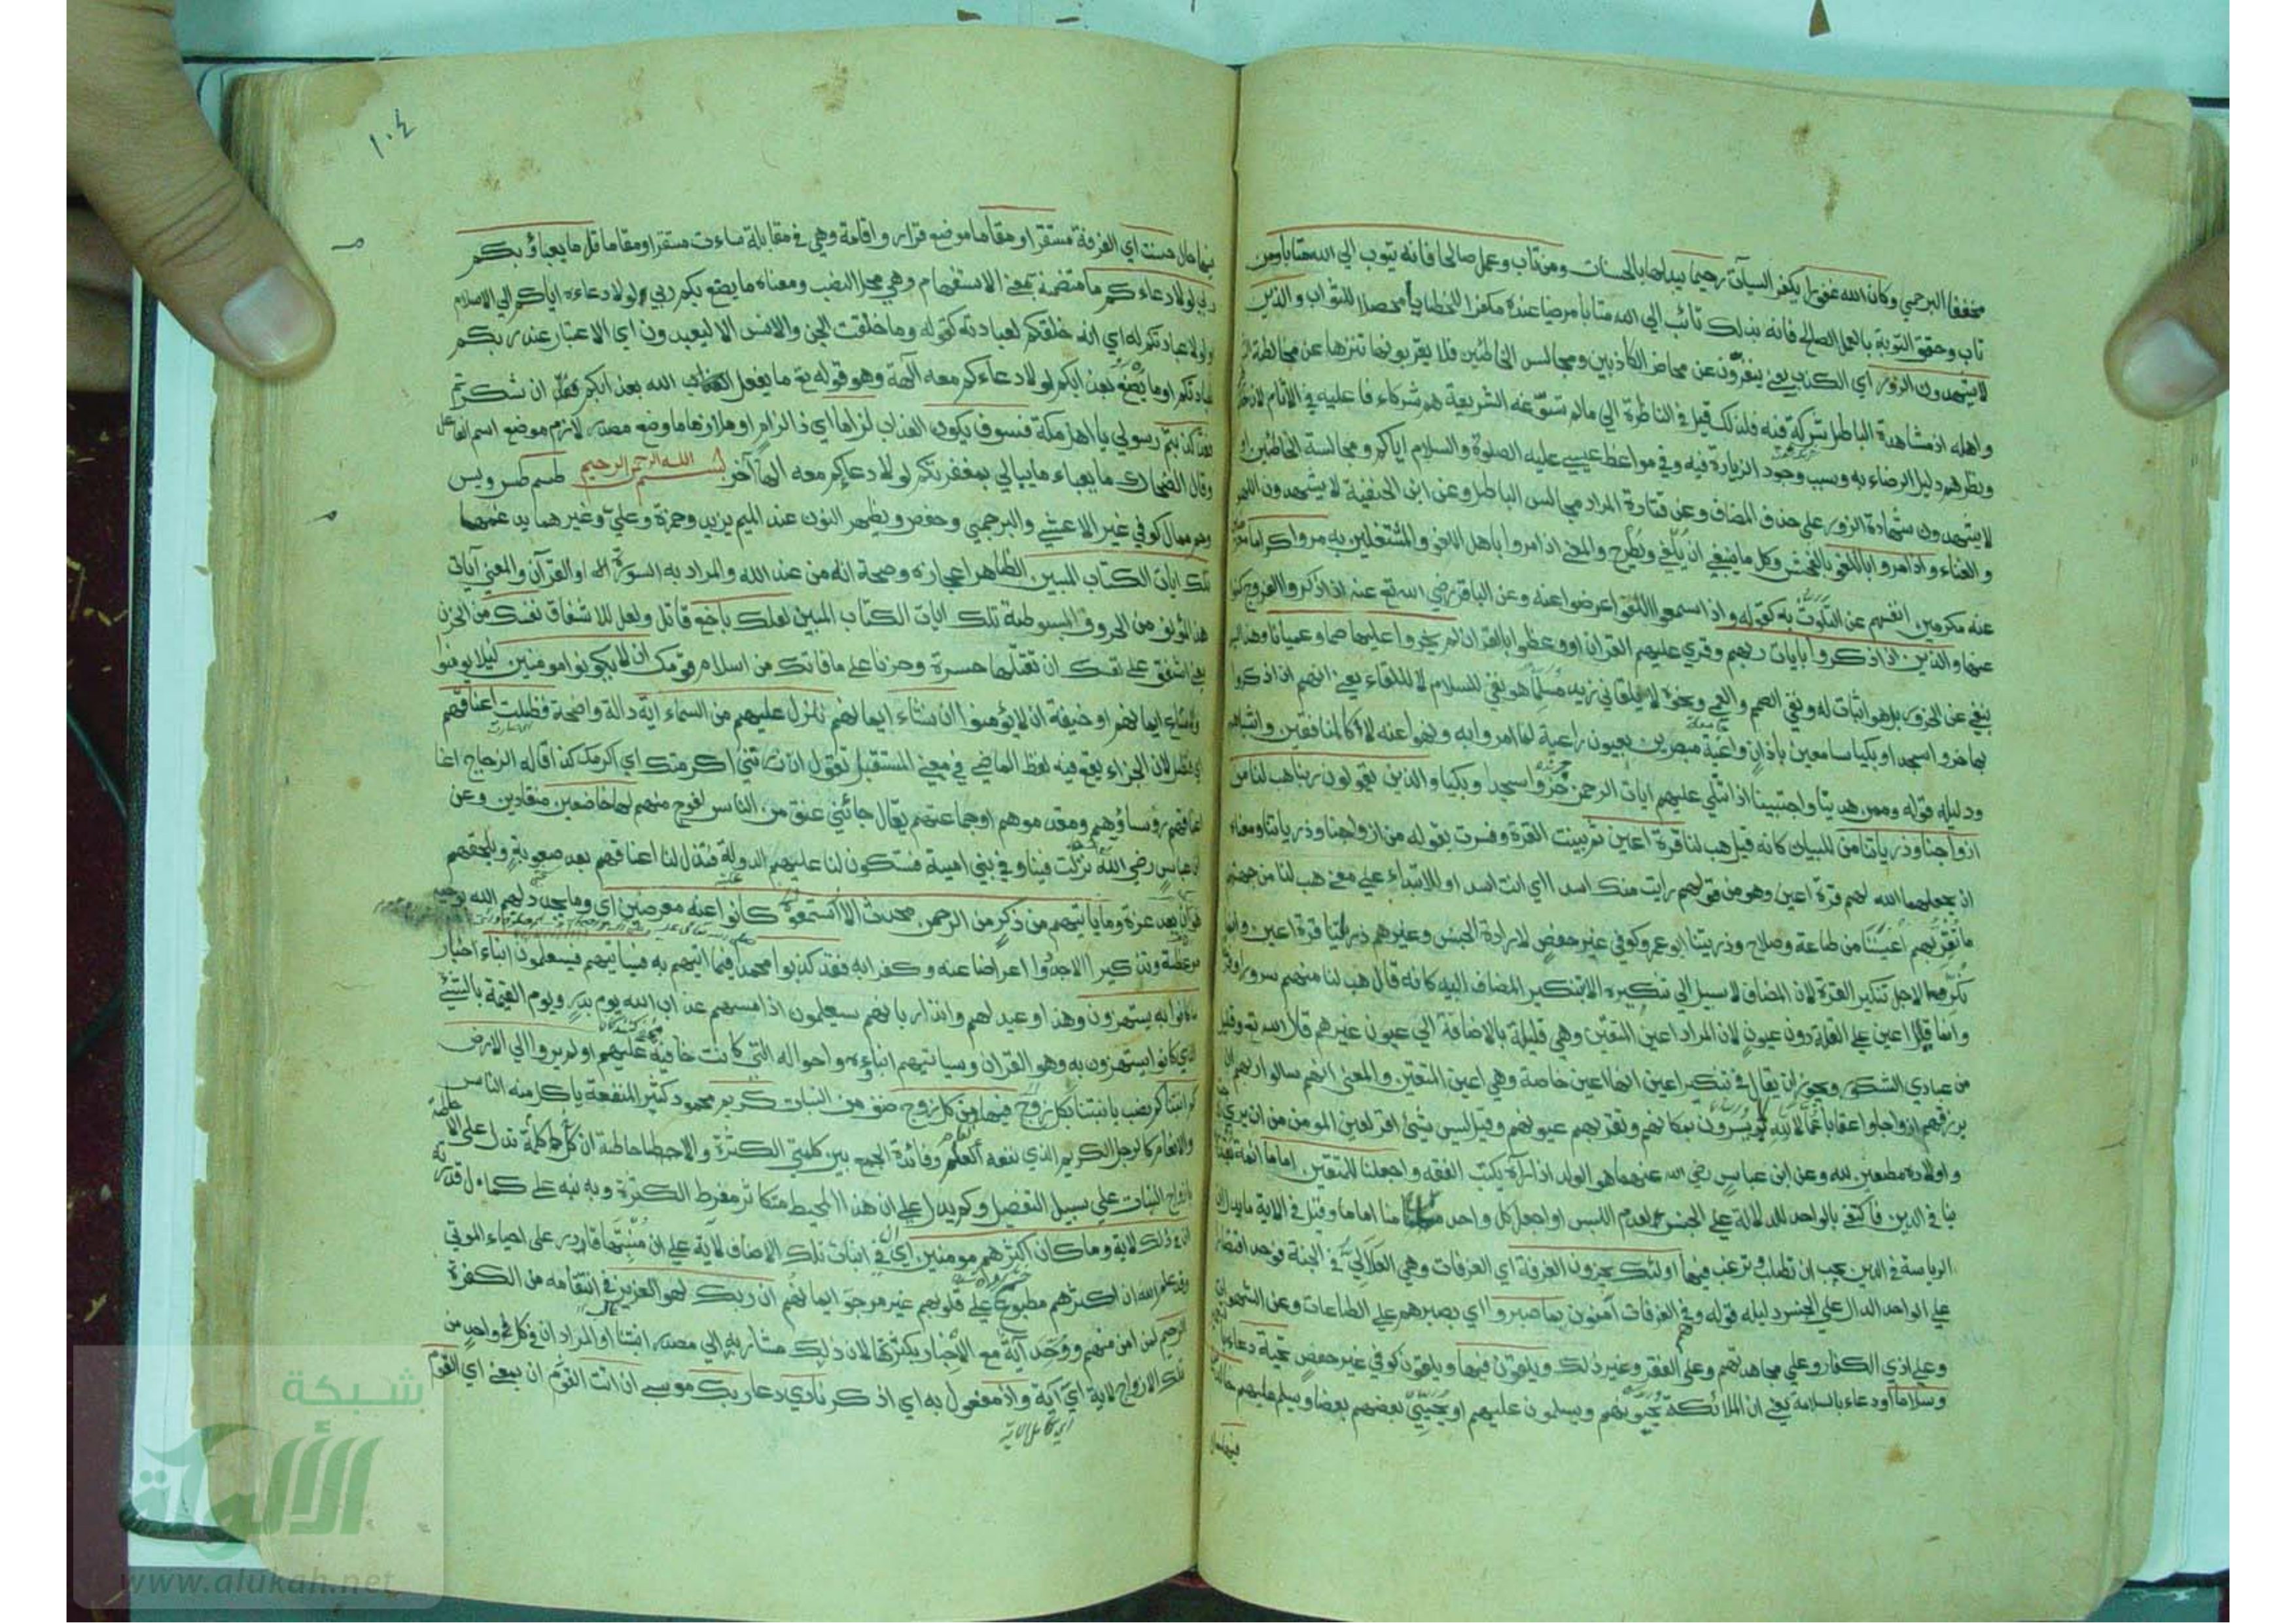 مخففا البرجمي وكان الله غفورا يكفر السيآت رحيما يبدلها بالحسنات ومن تاب وعمل صالحا فانه يتوب الي الله متابا ومن
تاب وحقق التوبة بالعمل الصالح فانه بذلك تائب الي الله متابا مرضيا عنده مكفرا للخطايا محصلا للثواب والذين
لا يشهدون الزور اي الكذب يعني ينفرون عن محاضر الكاذبين ومجالس الخاطئين فلا يقربونها تنزها عن مخالطة الشر
واهله اذ مشاهدة الباطل شركة فيه فلذلك قيل في الناظرة الي مالم تسوغه الشريعة هم شركاء فاعليه في الآثام لان حضورهم
ونظرهم دليل الرضاء به وسبب وجود الزيادة فيه وفي مواعظ عيسي عليه الصلوة والسلام اياكم ومجالسة الخاطئين او
لا يشهدون شهادة الزور علي حذف المضاف وعن قتادة المراد مجالس الباطل وعن ابن الحنفية لا يشهدون اللهو
والغناء واذا مروا باللغو بالفحش وكل ما ينبغي ان يلغي ويطرح والمعني اذا مروا باهل اللغو والمشتغلين به مروا كراما معرضين
عنه مكرمين انفسهم عن التلوث به كقوله واذا سمعوا اللغو اعرضوا عنه وعن الباقر رضي الله تع عنه اذا ذكروا الفروج كنوا
عنها والذين اذا ذكروا بايات ربهم وقري عليهم القران او وعظوا بالقران لم يخروا عليها صما وعميانا وهذا ليس
بنفي عن الخرور بل هو اثبات له ونفي الصمم والعمي ونحوه لا يلقاني زيد مسلما هو نفي للسلام لا للقاء يعني انهم اذا ذكروا
بها خروا سجدا وبكيا سامعين باذان واعية مبصرين بعيون راعية لما امروا به ونهوا عنه لا كالمنافقين واشباههم
ودليله قوله وممن هدينا واجتبينا اذا تتلي عليهم ايات الرحمن خروا سجدا وبكيا والذين يقولون ربنا هب لنا من
ازواجنا وذرياتنا من للبيان كانه قيل هب لنا قرة اعين ثم بينت القرة وفسرت بقوله من ازواجنا وذرياتنا ومعناه
ان يجعلهما الله لهم قرة اعين وهو من قولهم رايت منك اسدا اي انت اسد او للابتداء علي معني هب لنا من جهتهم
ما تقر بهم اعيننا من طاعة وصلاح وذريتنا ابو عمرو وكوفي غير حفص لارادة الجنس وغيرهم ذرياتنا قرة اعين وانما
نكر لاجل تنكير القرة لان المضاف لا سبيل الي تنكيره الا بتنكير المضاف اليه كانه قال هب لنا منهم سرورا وفرحا
وانما قيل اعين علي القلة دون عيون لان المراد اعين المتقين وهي قليلة بالاضافة الي عيون غيرهم قال الله تع وقليل
من عبادي الشكور ويجوز ان يقال في تنكير اعين انها اعين خاصة وهي اعين المتقين والمعني انهم سالوا ربهم ان
يرزقهم ازواجا واعقابا عمالا لله يسرون بمكانهم وتقر بهم عيونهم وقيل ليس شيئ اقر لعين المومن من ان يري زوجته
واولاده مطيعين لله وعن ابن عباس رضي الله عنهما هو الولد اذا رآه يكتب الفقه واجعلنا للمتقين اماما ائمة يقتدون
بنا في الدين فاكتفي بالواحد لدلالة علي الجنس لعدم اللبس او اجعل كل واحد منا اماما وقيل في الاية ما يدل ان
الرياسة في الدين يجب ان تطلب وترغب فيها اولئك يجزون الغرفة اي الغرفات وهي العلالي في الجنة فوحد اقتصارا
علي الواحد الدال علي الجنس دليله قوله وهم في الغرفات آمنون بما صبروا اي بصبرهم علي الطاعات وعن الشهوات
وعلي اذي الكفار وعلي مجاهدتهم وعلي الفقر وغير ذلك ويلقون فيها ويلقون كوفي غير حفص تحية دعاء
وسلاما ودعاء بالسلامة يعني ان الملائكة يحيونهم ويسلمون عليهم او يحيي بعضهم بعضا ويسلم عليهم خالدين
١٠٤
فيها حال حسنت اي الغرفة مستقرا ومقاما موضع قرار واقامة وهي في مقابلة ساءت مستقرا ومقاما قل ما يعباؤ بكم
ربي لولا دعاءكم ما متضمنة لمعني الاستفهام وهي محل النصب ومعناه ما يصنع بكم ربي لولا دعاءه اياكم الي الاسلام
ولولا عبادتكم له اي انه خلقكم لعبادته كقوله وما خلقت الجن والانس الا ليعبدون اي الاعتبار عند ربكم
لعبادتكم او ما يصنع بعذابكم لولا دعاءكم معه آلهة وهو قوله تع ما يفعل الله بعذابكم ان شكرتم
فقد كذبتم رسولي يا اهل مكة فسوف يكون العذاب لزاما اي ذا لزام او ملازما وضع مصدر لازم موضع اسم الفاعل
وقال الضحاك ما يعباء ما يبالي بمغفرتكم لولا دعاءكم معه الها آخر بسم الله الرحمن الرحيم طسم طس ويس
وحم ممال كوفي غير الاعشي والبرجمي وحفص ويظهر النون عند الميم يزيد وحمزة وعلي وغيرهما يدغمها
تلك ايات الكتاب المبين الظاهر اعجازه وصحة انه من عند الله والمراد به السورة او القرآن والمعني آيات
هذا المؤلف من الحروف المبسوطة تلك ايات الكتاب المبين لعلك باخع قاتل ولعل للاشفاق نفسك من الحزن
يعني اشفق علي نفسك ان تقتلها حسرة وحزنا علي ما فاتك من اسلام قومك ان لا يكونوا مومنين لئلا يومنوا
ولامتناع ايمانهم او خيفة ان لا يؤمنوا ان نشاء ايمانهم ننزل عليهم من السماء اية دالة واضحة فظلت اعناقهم
اي فتظل لان الجزاء يقع فيه لفظ الماضي في معني المستقبل تقول ان زرتني اكرمتك اي اكرمك كذا قاله الزجاج
اعناقهم رؤساؤهم ومقدموهم او جماعتهم يقال جائني عنق من الناس لفوج منهم لها خاضعين منقادين وعن
ابن عباس رضي الله نزلت فينا وفي بني امية فستكون لنا عليهم الدولة فتذل لنا اعناقهم بعد صعوبة ويلحقهم
هوان بعد عزة وما ياتيهم من ذكر من الرحمن محدث الا كانوا عنه معرضين اي وما يجدد لهم الله بوحيه
موعظة وتذكيرا الا جددوا اعراضا عنه وكفرا به فقد كذبوا محمدا فيما اتيهم به فسياتيهم فسيعلمون انباء اخبار
ما كانوا به يستهزون وهذا وعيد لهم وانذار بانهم سيعلمون اذا مسهم عذاب الله يوم بدر ويوم القيمة بالشيئ
الذي كانوا يستهزون به وهو القران وسياتيهم انباؤه واحواله التي كانت خافية عليهم اولم يروا الي الارض
كم انبتنا فيها من كل زوج صنف من النبات كريم محمود كثير المنفعة ياكل منه الناس
والانعام كالرجل الكريم الذي نفعه وفائدة الجمع بين كلمتي الكثرة والاحاطة ان كلمة كل تدل علي الاحاطة
بازواج النبات علي سبيل التفصيل وكم يدل علي ان هذا المحيط متكاثر مفرط الكثرة وبه نبه علي كمال قدرته
ان في ذلك لاية وما كان اكثرهم مومنين اي ان في انبات تلك الاصناف لاية علي ان منبتها قادر علي احياء الموتي
وقد علم الله ان اكثرهم مطبوع علي قلوبهم غير مرجو ايمانهم ان ربك لهو العزيز في انتقامه من الكفرة
الرحيم لمن امن منهم ووحد آية مع الاخبار بكثرتها لان ذلك مشار به الي مصدر انبتنا او المراد ان في كل واحد من
تلك الازواج لاية اي آية واذ مفعول به اي اذكر نادي دعا ربك موسي ان ائت القوم ان بمعني اي القوم
شبكة
الألوكة
www.alukah.net